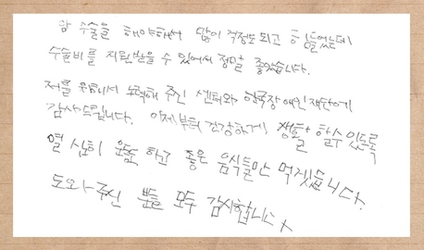 암 수술을 해야해서 많이 걱정도 되고 힘들었는데
수술비를 지원받을 수 있어서 정말 좋았습니다.
저를 위해서 노력해 주신 센터와 한국장애인재단에
감사드립니다. 이제부터 건강하게 생활 할 수 있도록
열심히 운동 하고 좋은 음식들만 먹겠습니다.
도와주신 분들 모두 감사합니다